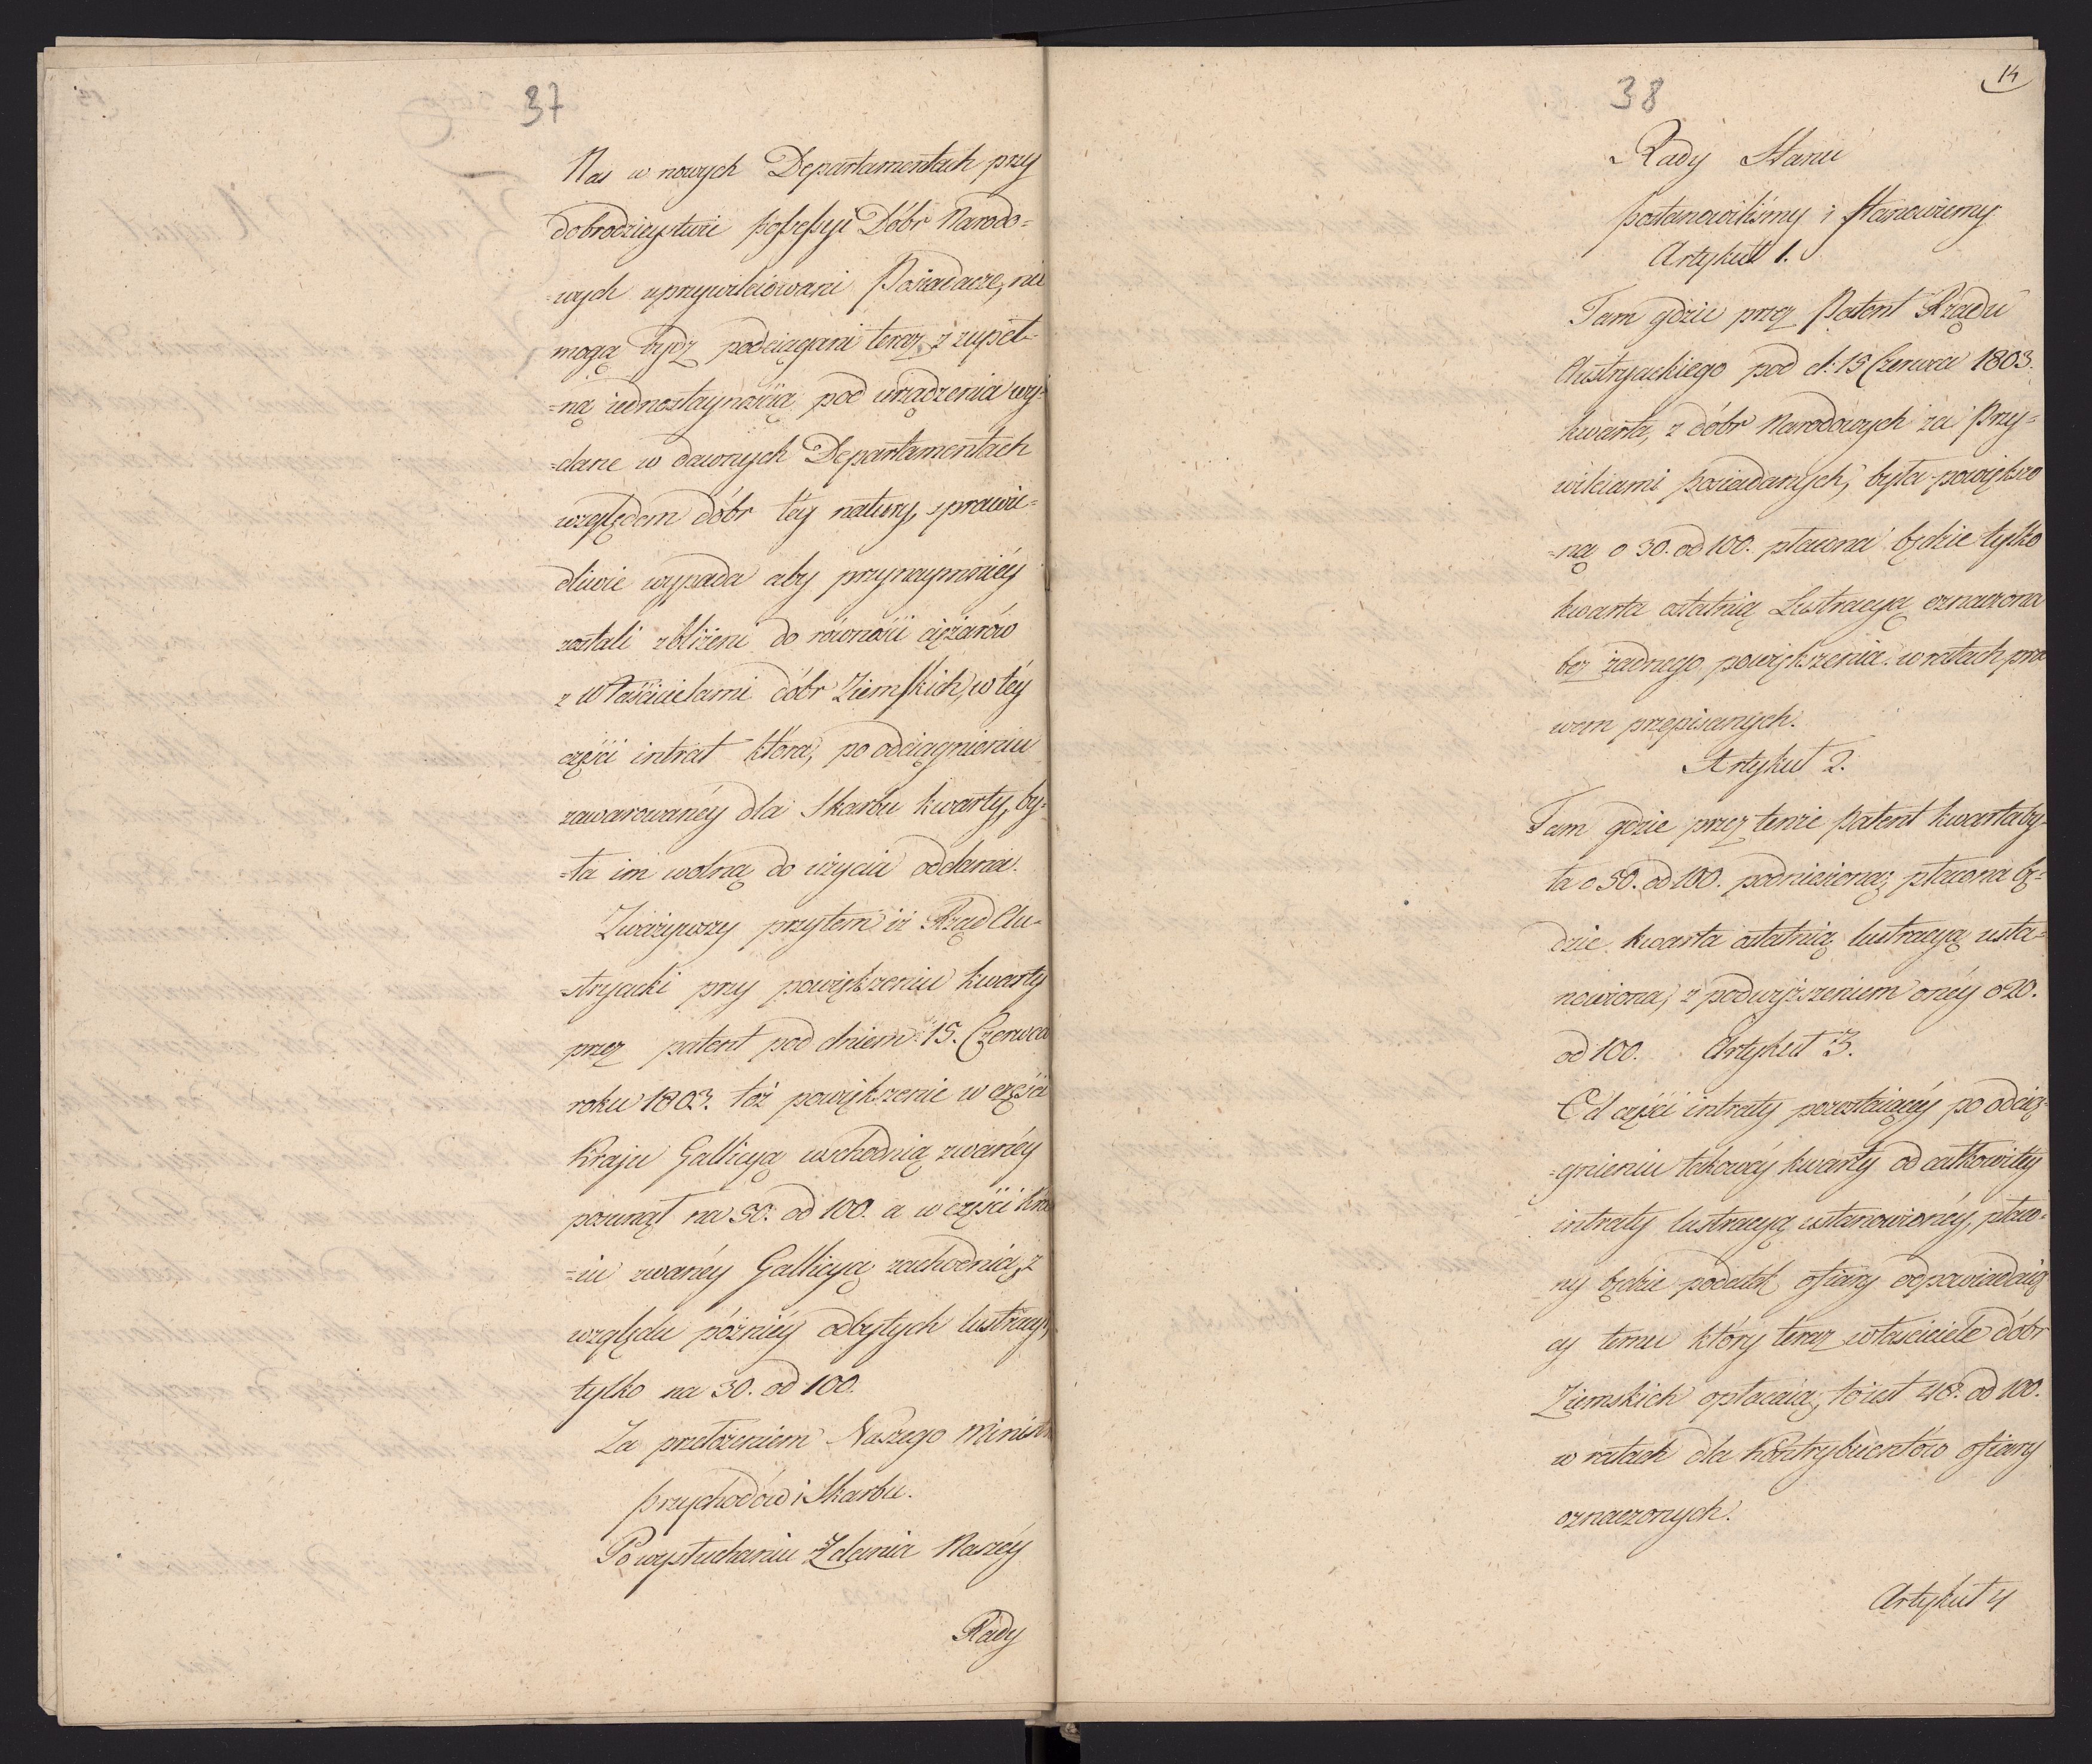 37
Nas w nowych Departamentach przy
dobrodzieystwie possessyi Dóbr Narodo=
=wych uprzywileiowani Posiadacze, nie
mogą bydź podciągani teraz z zupeł=
=ną iednostaynością pod urządzenia wy=
=dane w dawnych Departamentach
względem dóbr téy natury, sprawie=
dliwie wypada aby przynaymniéy
zostali zbliżeni do równości ciężarów
z Właścicielami dóbr Ziemskich, w téy
części intrat która, po odciągnieniu
zawarowanéy dla Skarbu kwarty, by=
=ła im wolną do użycia oddana.
Zważywszy przytem iż Rząd Au=
=stryacki przy powiększeniu kwarty
przez patent pod dniem 15. Czerwca
roku 1803. toż powiększenie w części
Kraju Gallicyą wschodnią zwanéy
posunął na 50. od 100. a w części Kra
=iu zwanéy Gallicyą zachodnią, z
względu późniéy odbytych lustracyi,
tylko na 30. od 100.
Za przełożeniem Naszego Ministra
Przychodów i Skarbu.
Po wysłuchaniu Zdania Naszéy
Rady
38
14
Rady Stanu
postanowiliśmy i stanowiemy
Artykuł 1.
Tam gdzie przez Patent Rządu
Austryackiego pod d. 15 Czerwca 1803.
kwarta, z dóbr Narodowych za Przy=
wileiami posiadanych, była powiększo
=ną o 30. od 100. płacona będzie tylko
kwarta ostatnią Lustracyą oznaczona
bez żadnego powiększenia w ratach pra
wem przepisanych.
Artykuł 2.
Tam gdzie przez tenże patent kwarta by=
ła o 50. od 100. podniesiona; płacona bę=
dzie kwarta ostatnią lustracyą usta=
nowiona, z podwyższeniem onéy o 20.
od 100. Artykuł 3.
Od części intraty pozostaiącéy po odcią=
=gnieniu takowéy kwarty od całkowitéy
intraty lustracyą ustanowionéy, płaco=
ny będzie podatek ofiary odpowiadaią
cy temu który teraz właściciele dóbr
Ziemskich opłacaią, to iest 48. od 100.
w ratach dla Kontrybuentów ofiary
oznaczonych.
Artykuł 4